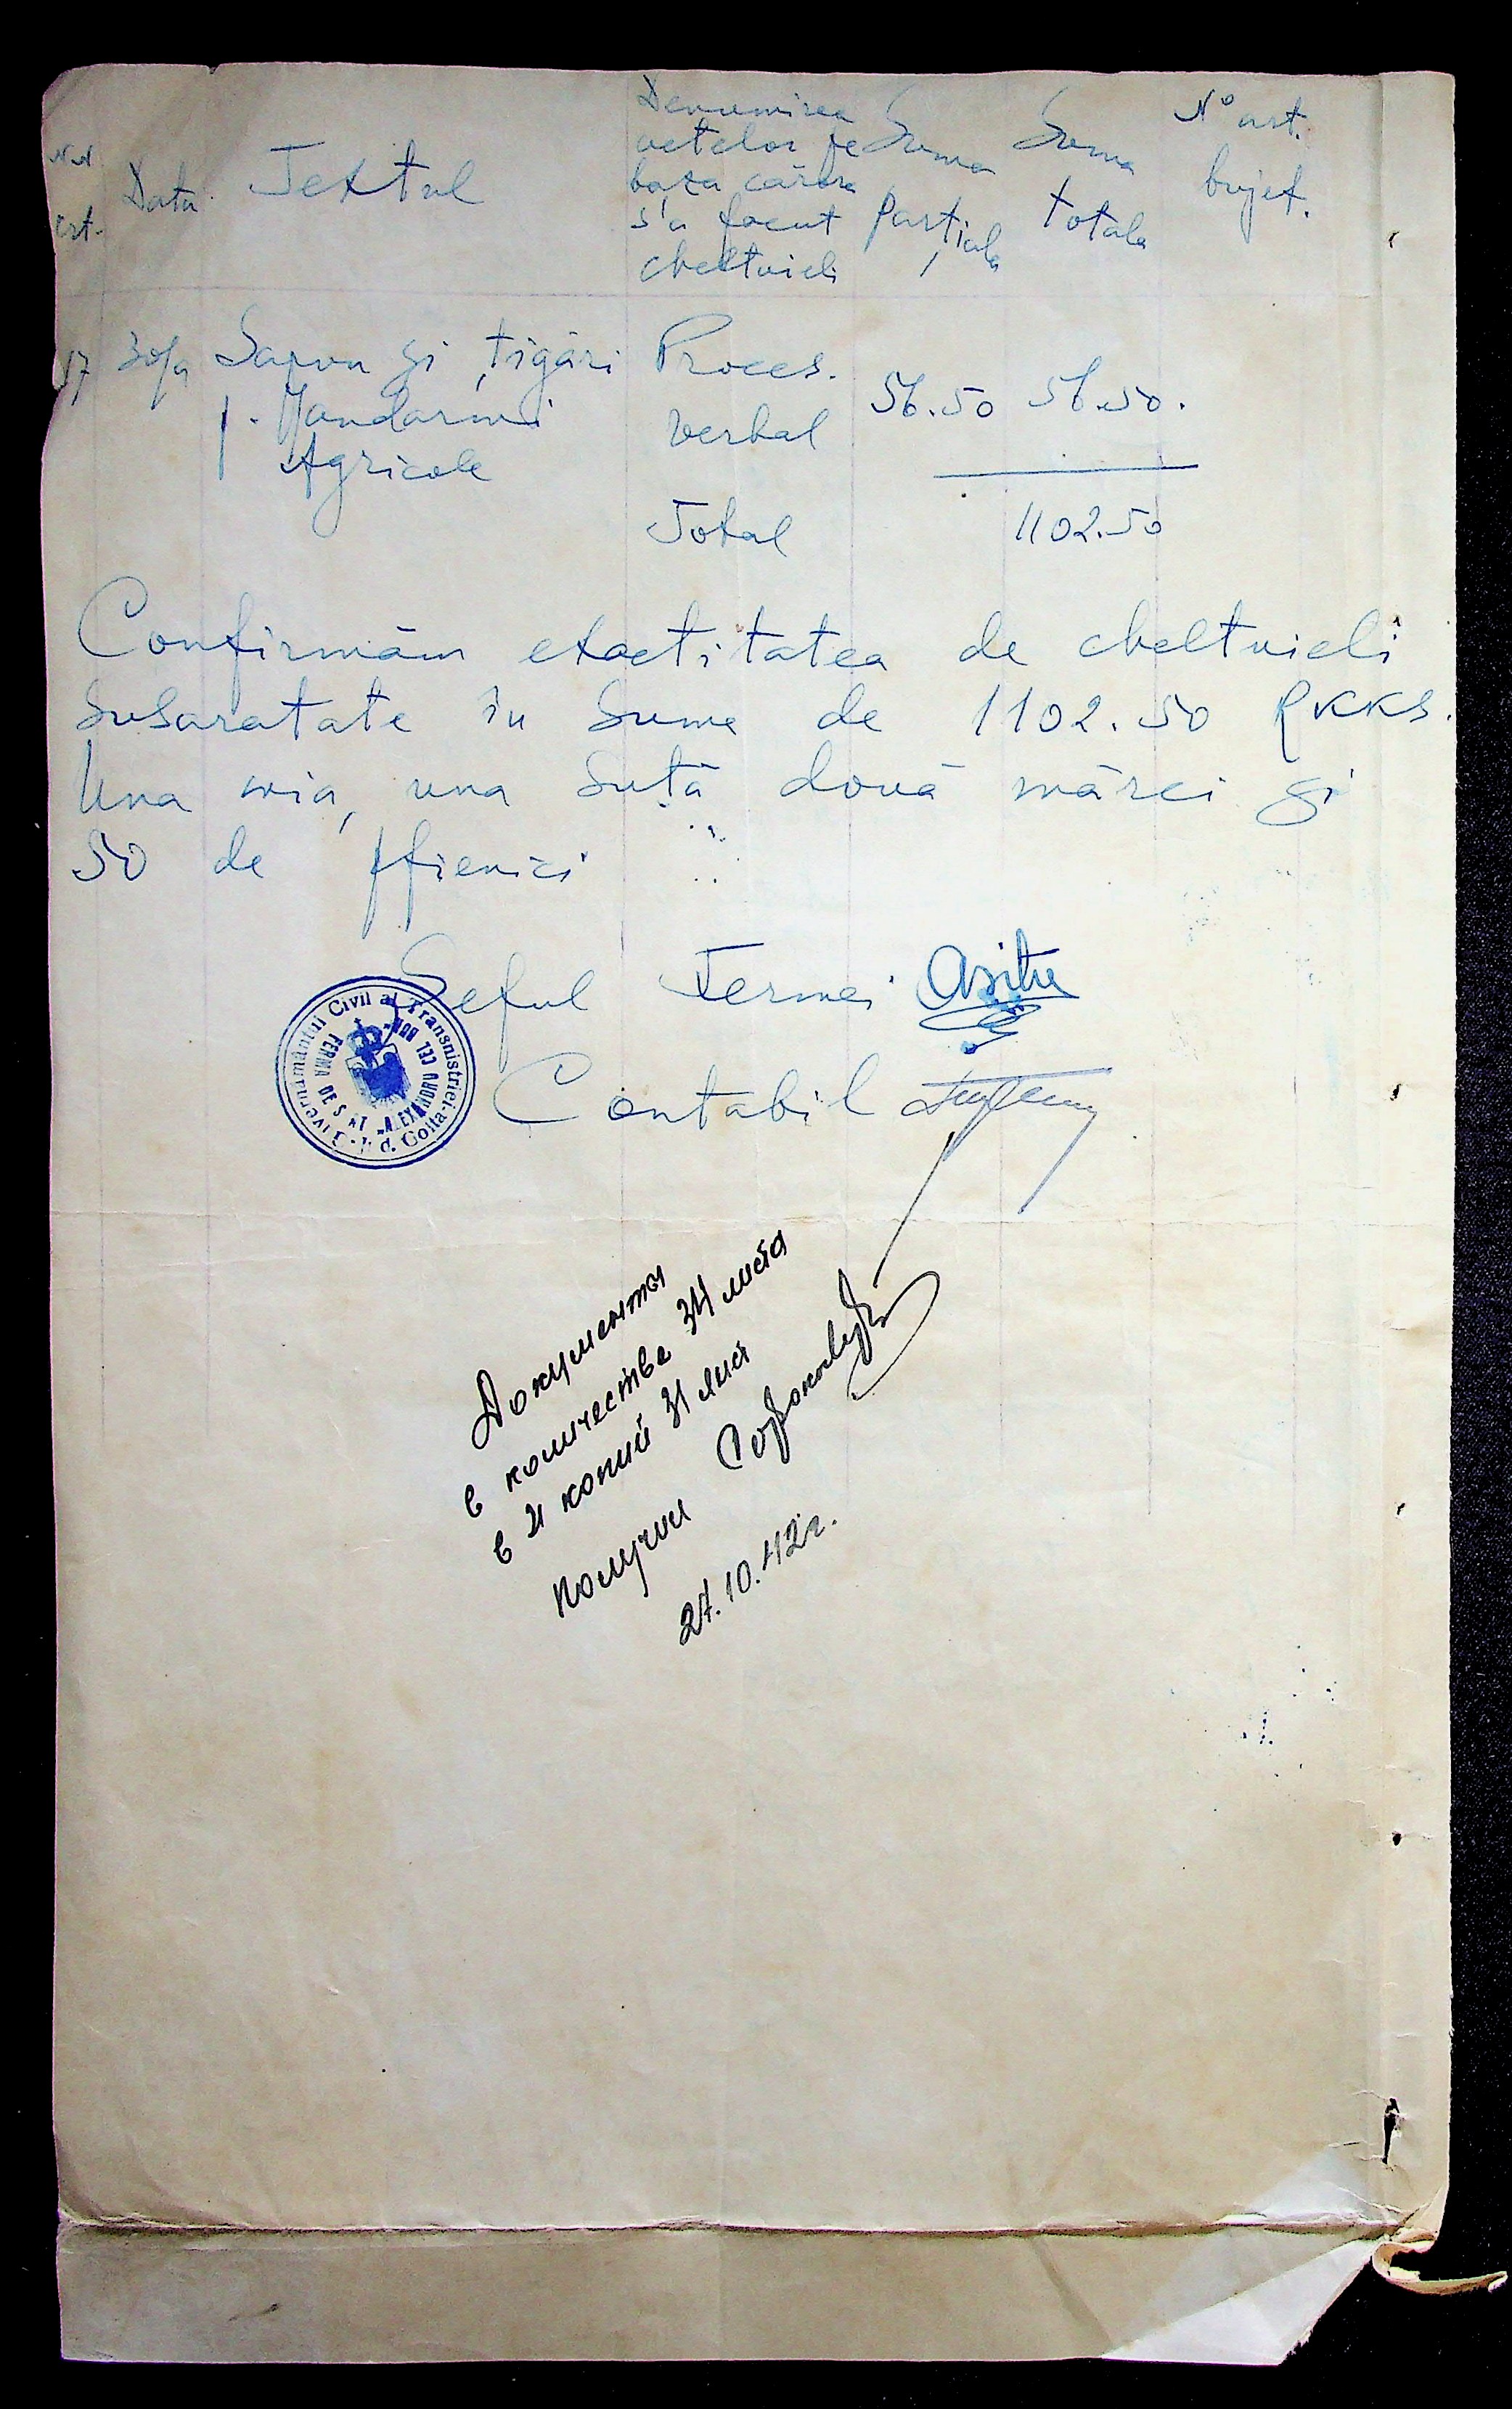 NN crt.
Data
Textul
Denumirea
actelor pe
baza cărora
s'a facut
cheltuieli
Suma parțiala
Suma totala
N° art. bujet.
17 30/9 Sapun și țigări Proces. 56.50 56.50.
p. Jandarmi verbal
Agricole
Total 1102.50
Confirmăm exactitatea de cheltuieli
susaratate în sume de 1102.50 RKKS.
Una mia, una sută două mărci și
50 de pfienici
Șeful Fermei
Contabil
Guvernământul Civil al Transnistriei - Jud. Golta
FERMA DE STAT „ALEXANDRU CEL BUN"
Документы
в количестве 34 листа
в 2х копий 31 лист
получил
27.10.42г.